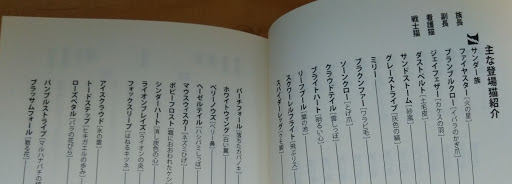 主な登場猫紹介
サンダー族
族長
ファイヤスター［火の星］
副長
ブランブルクロー［イバラのかぎ爪］
看護猫
ジェイフェザー［カケスの羽］
戦士猫
グレーストライプ［灰色の縞］
ダストペルト［土毛皮］
サンドストーム［砂嵐］
ミリー
ブラクンファー［ワラビ毛］
ソーンクロー［とげ爪］
クラウドテイル［雲しっぽ］
ブライトハート［明るい心］
リーフプール［葉の池］
スクワーレルフライト［飛ぶリス］
スパイダーレッグ
バーチフォール［落ちたカバノキ］
ホワイトウィング［白い翼］
ベリーノウズ［ベリー鼻］
ヘーゼルテイル［ハシバミしっぽ］
マウスウィスカー［ネズミひげ］
シンダーハート［消し炭色の心］
ライオンブレイズ［ライオンの炎］
フォックスリープ［はねるキツネ］
アイスクラウド［氷の雲］
トードステップ［ヒキガエルの歩み］
ローズペタル［バラの花びら］
バンブルストライプ［マルハナバチの
ブラッサムフォール［散る花］